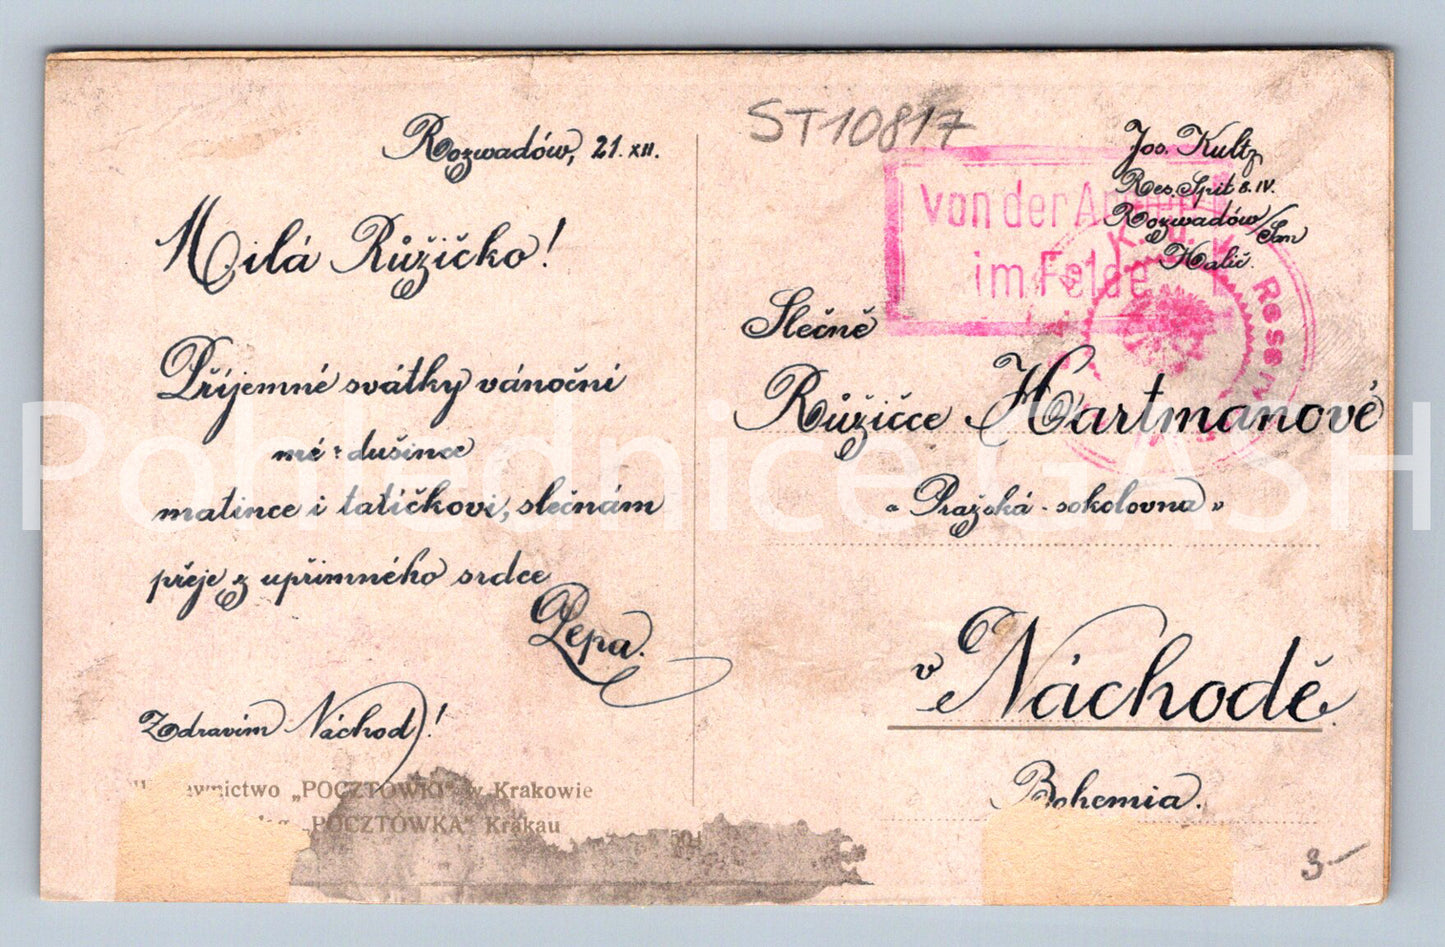 Rozwadów, 21. XII.
Milá Růžičko!
Příjemné svátky vánoční
mé dušince
matince i tatíčkovi, slečnám
přeje z upřímného srdce
Pepa.
Zdravím Náchod!
"POCZTÓWKI" w Krakowie
"POCZTÓWKA" Krakau
ST10817
Jos. Kultz
Res. Spit 8. IV.
Rozwadów/San
Halič.
Von der Armee
im Felde
K. u. K.
Reserv
Slečně
Růžičce Hartmanové
"Pražská - sokolovna"
v Náchodě
Bohemia.
3-
Pohlednice GASH